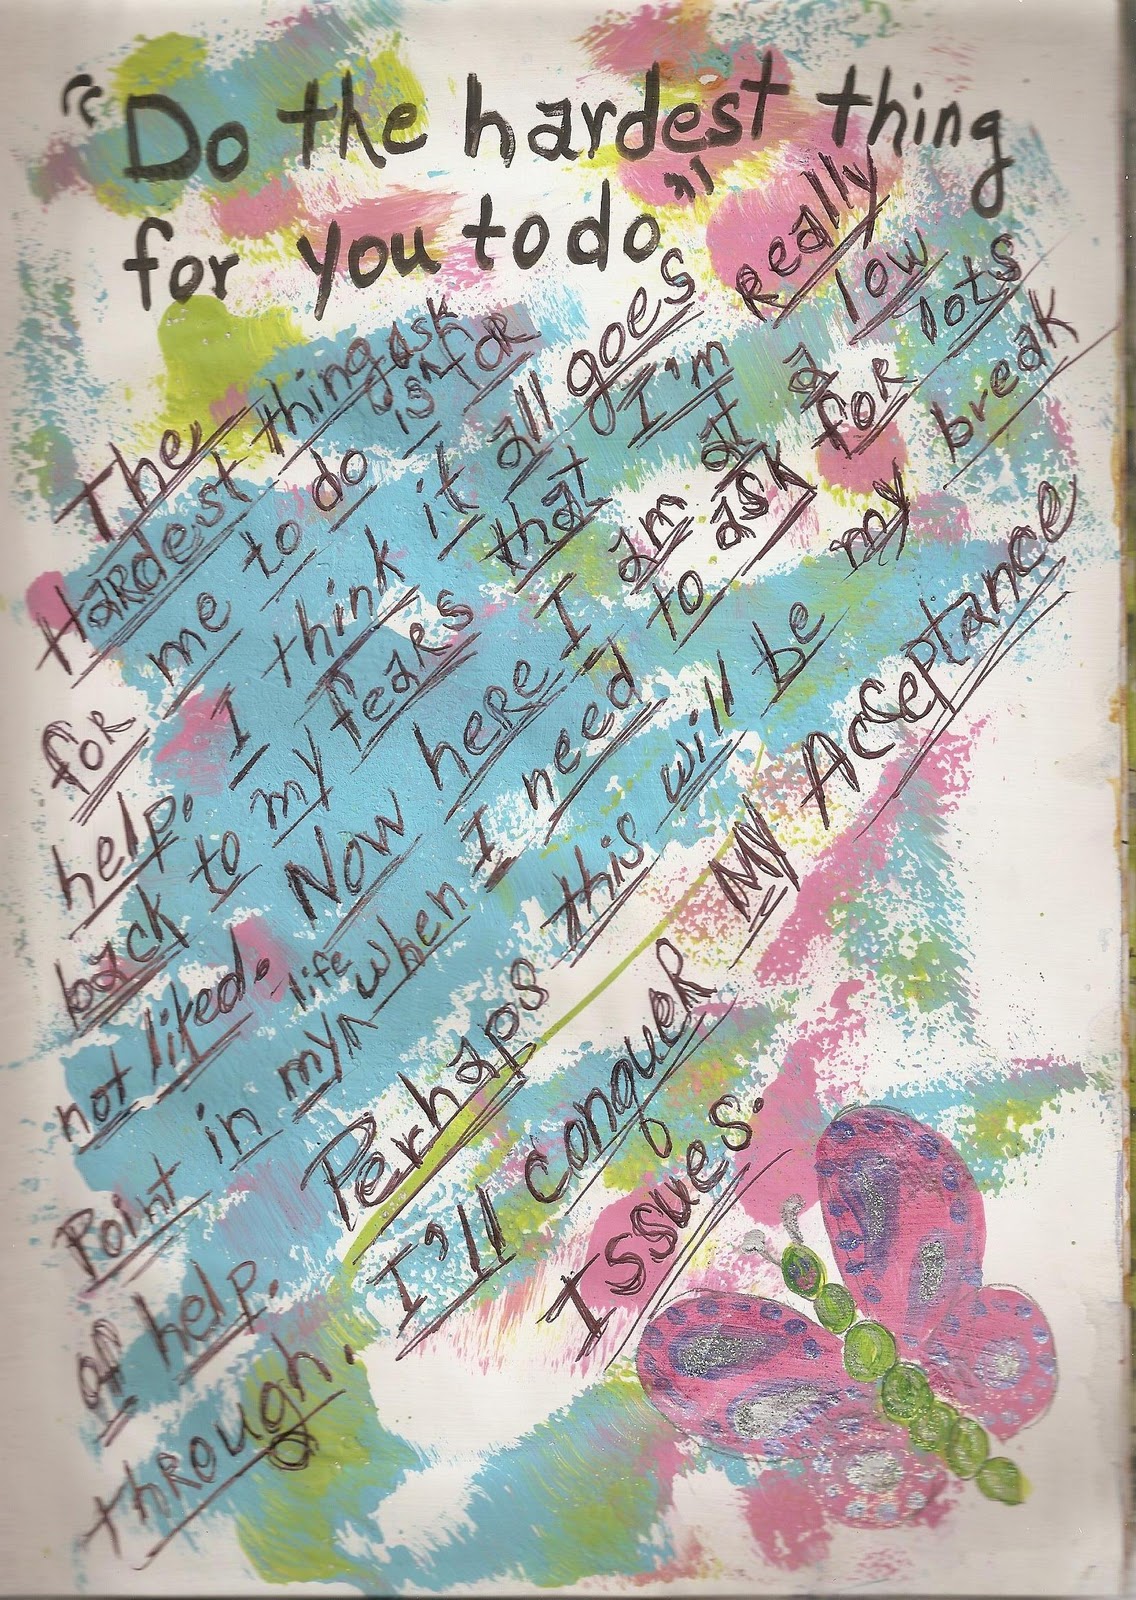 "Do the hardest thing
for you to do"
The
Hardest thing
for me to do is ask for
help. I think it all goes
back to my fears that I'm Really
not liked. Now here I am at a low
Point in my life when I need to ask for lots
of help. Perhaps this will be my break
through. I'll conquer My Acceptance
Issues.